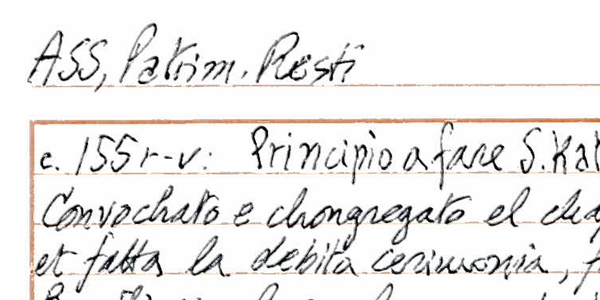 ASS, Patrim. Resti
c. 155r-v: Principio a fare S. Kat
Convochato e chongregato el
et fatta la debita cerimonia,